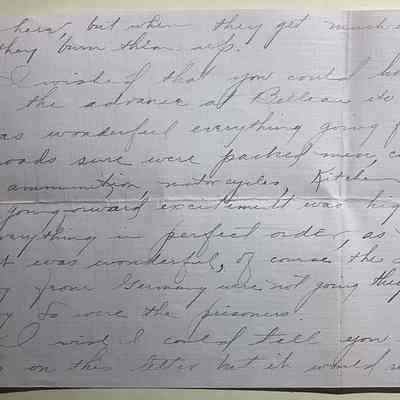 here, but when they get much
they burn them up.
I wish that you could
the advance at Belleau
as wonderful everything going
oads sure were packed men,
ammunition, motorcycles, Kitchen
going forward excitement was hig
rything in perfect order, as
t was wonderful, of course the
from Germany were not going the
so were the prisoners.
I wish I could tell you
on this letter but it would